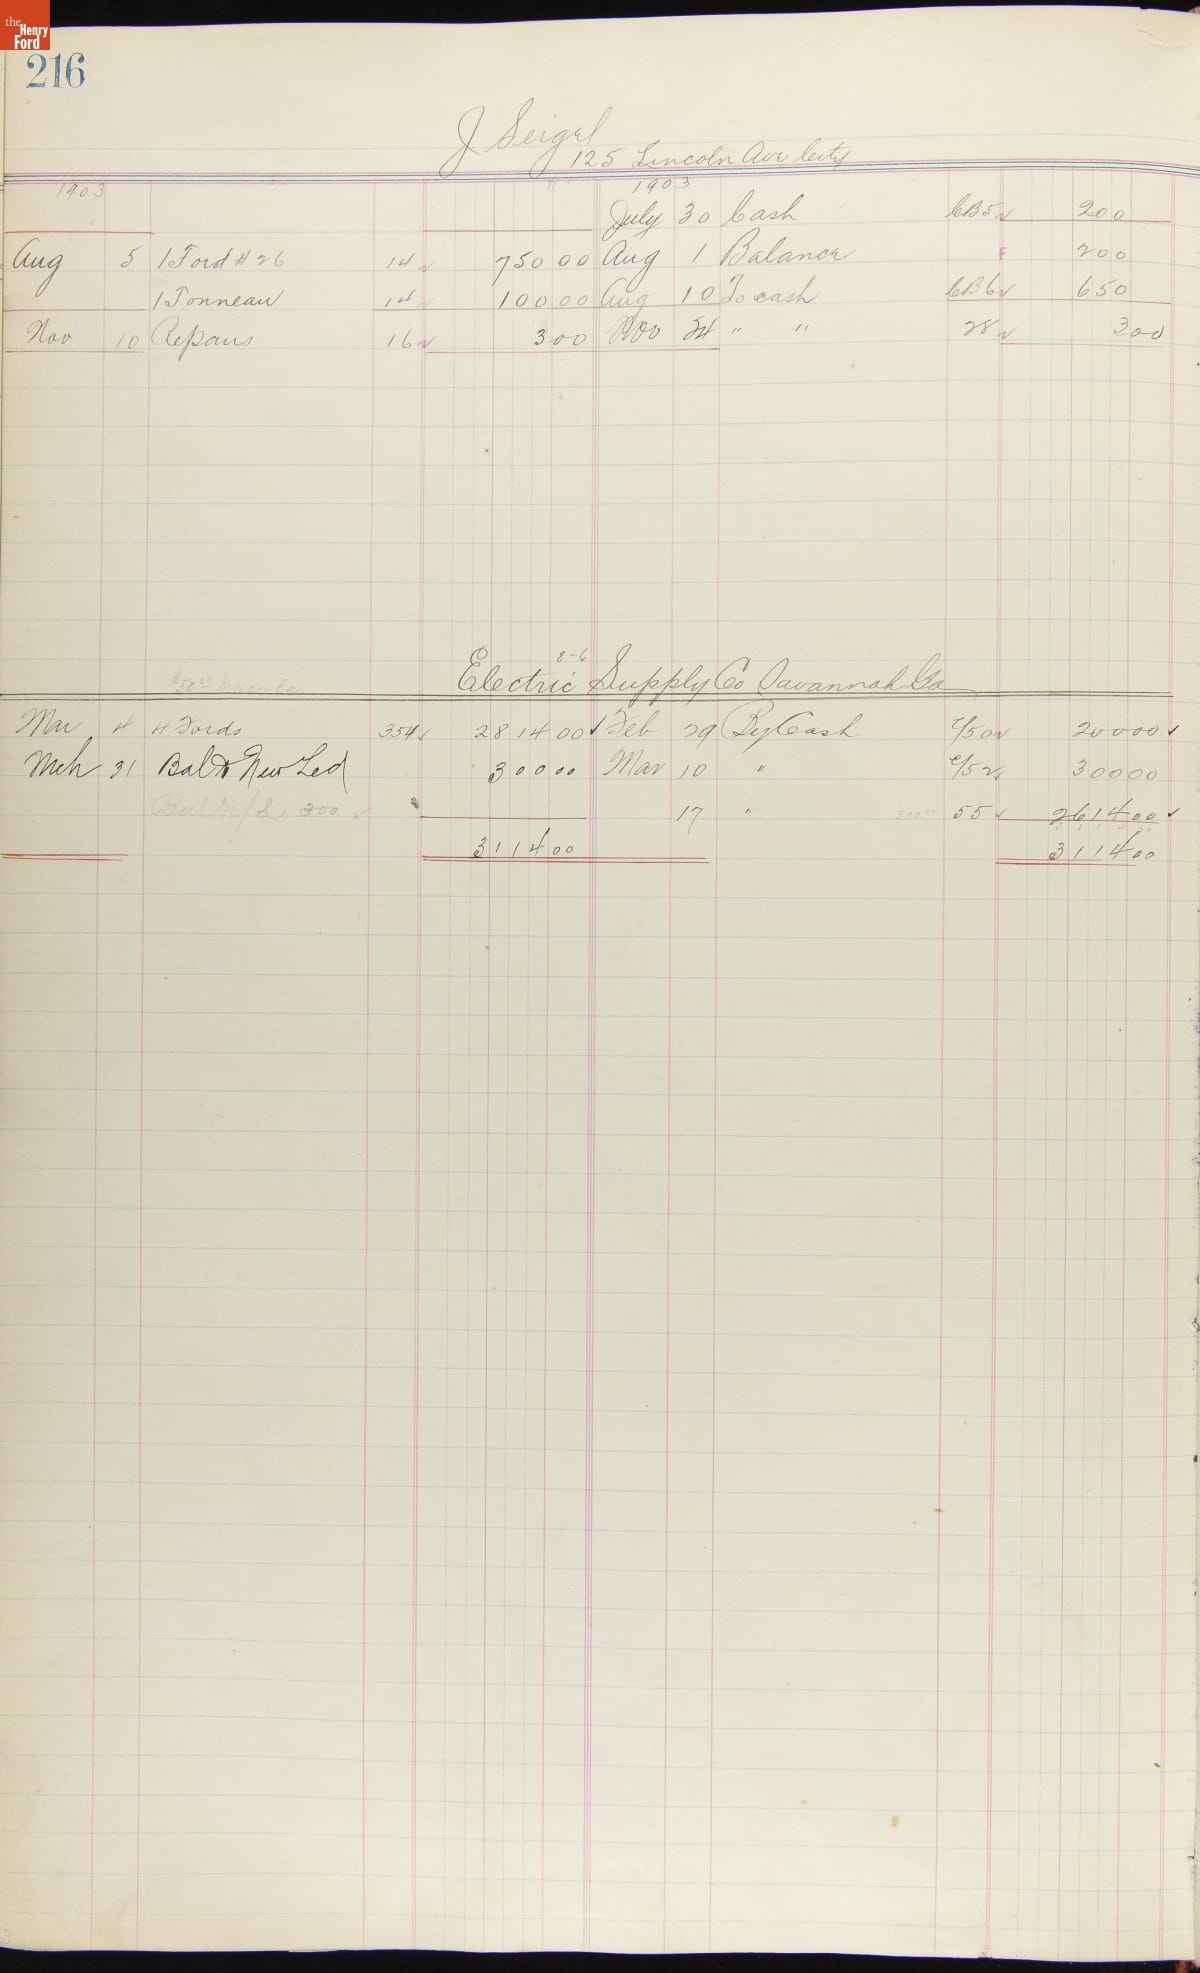 the Henry Ford
216
J Seigel
125 Lincoln Ave City
1903 1903
July 30 Cash CB5 200
Aug 5 1 Ford # 26 14 750 00 Aug 1 Balance F 200
1 Tonneau 14 100 00 Aug 10 To cash CB6 650
Nov 10 Repairs 16 3 00 Nov 24 " " 28 3 00
8-6
Electric Supply Co Savannah Ga
$50 00
Mar 4 4 Fords 354 ✓ 2814 00 ✓ Feb 29 By Cash C/50 200 00 ✓
Mch 31 Bal to New Led 300 00 Mar 10 " C/52 300 00
Bal N/L 300 ✓ 17 " 300 00 55 ✓ 2614 00 ✓
3114 00 3114 00